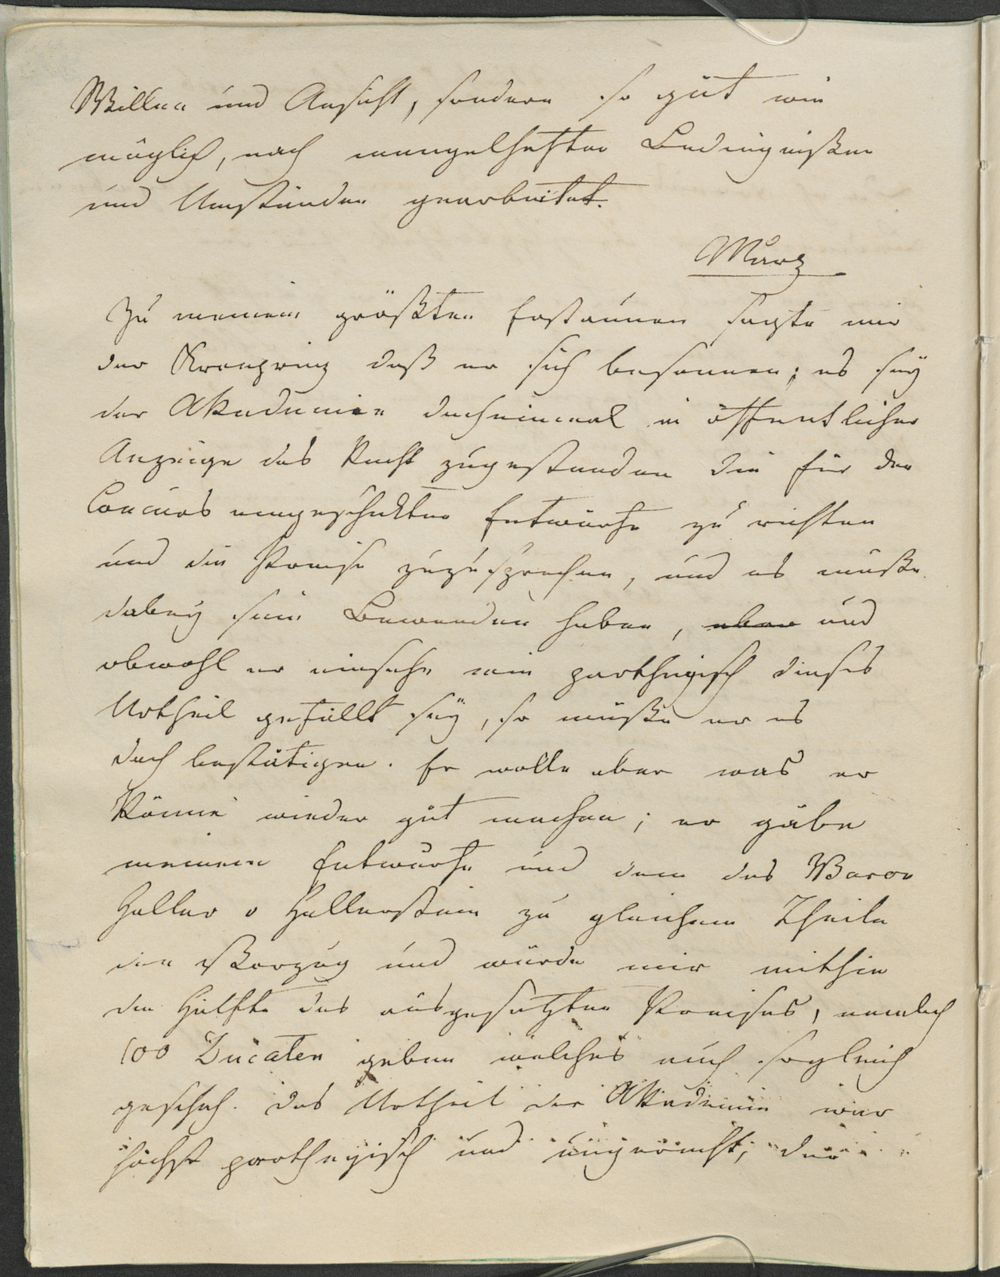 Willen und Ansicht, sondern so gut wie
möglich, nach mangelhaften Bedingnißen
und Umständen gearbeitet.
März
Zu meinem größten Erstaunen sagte mir
der Kronprinz daß er sich besonnen; es sey
der Akademie docheinmal in öffentlicher
Anzeige das Recht zugestanden die für den
Concurs eingeschikten Entwürfe zu richten
und die Preise zuzusprechen, und es müße
dabey sein Bewenden haben, aber und
obwohl er einsehe wie partheyisch dieses
Urtheil gefällt sey, so müße er es
doch bestätigen. Er wolle aber was er
könne wieder gut machen; er gäbe
meinem Entwurfe und dem des Baron
Haller v Hallerstein zu gleichem Theile
den Vorzug und würde mir mithin
die Hälfte des ausgesetzten Preises, nemlich
100 Ducaten geben welches auch sogleich
geschah. Das Urtheil der Akademie war
höchst partheyisch und ungerecht; den